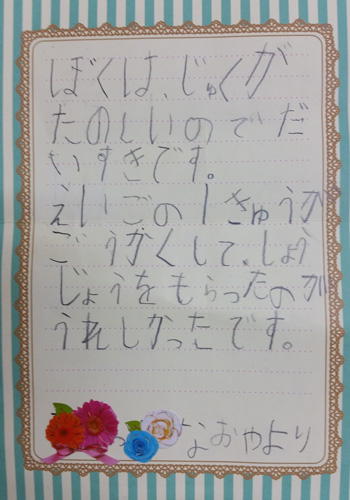 ぼくは、じゅくが
たのしいのでだ
いすきです。
えいごの1きゅうが
ごうかくして、しょう
じょうをもらったのが
うれしかったです。
なおやより